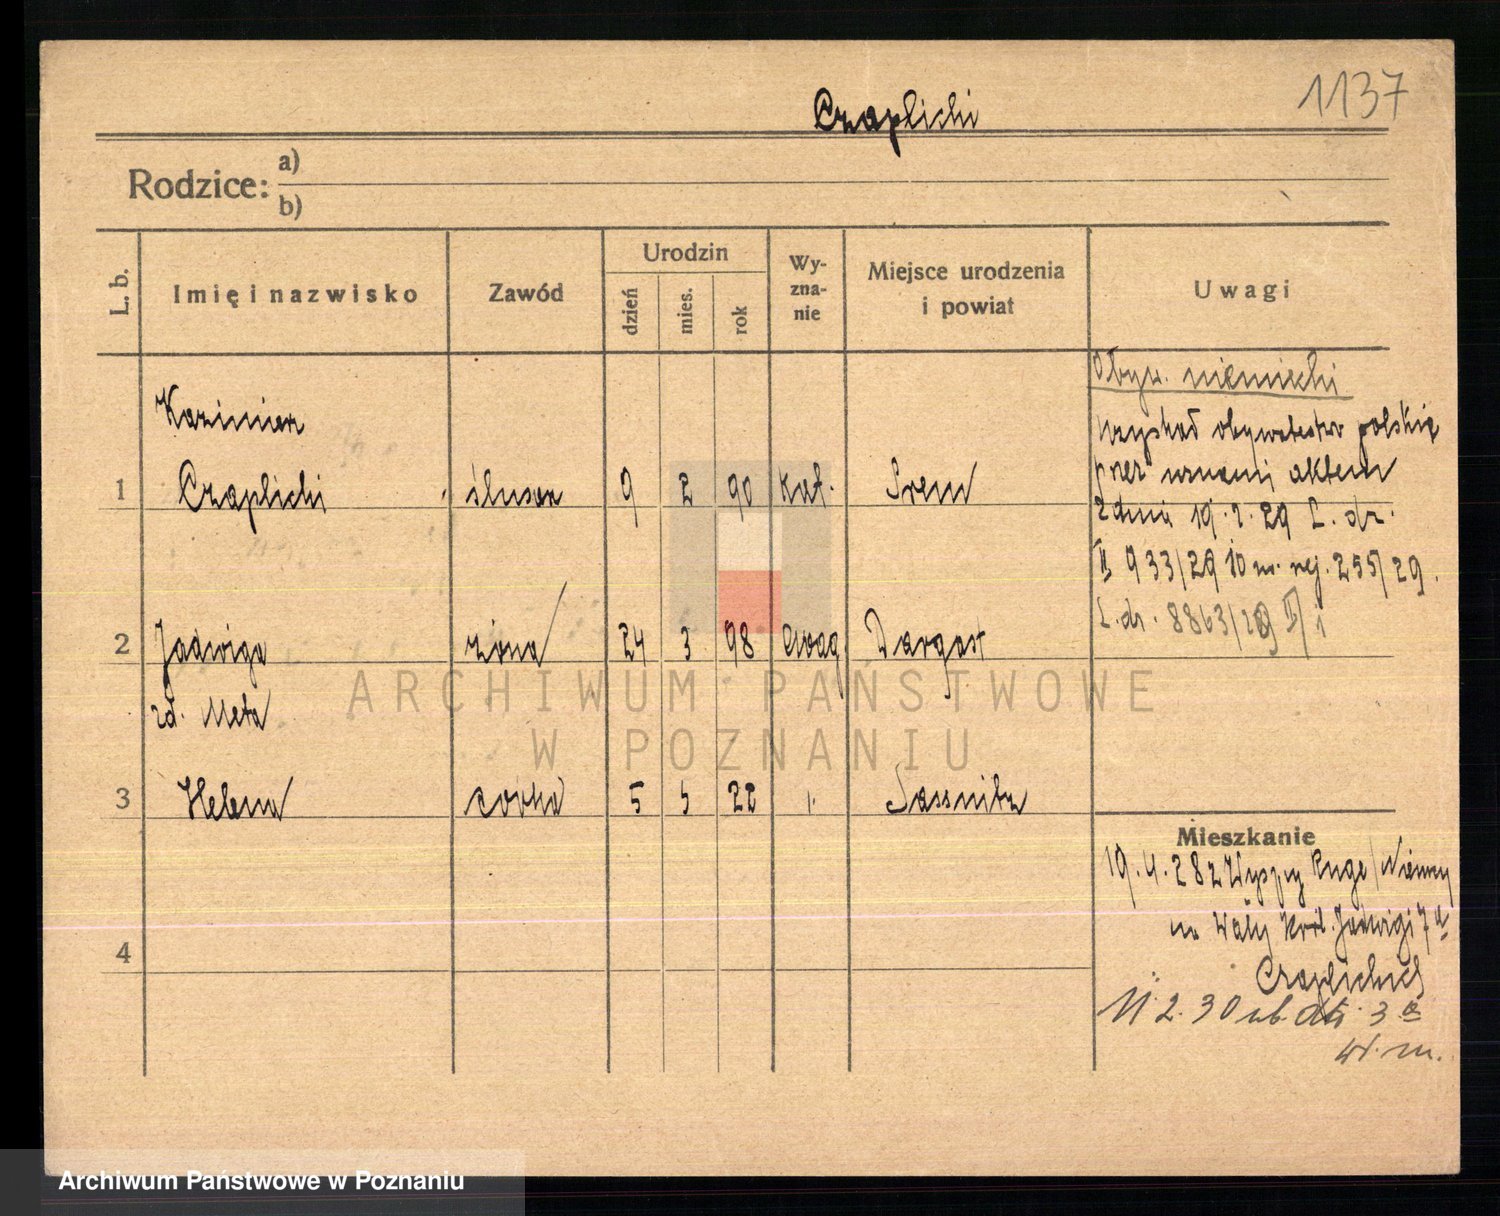 1137
Czaplicki
Rodzice:
a)
b)
L. b.
Imię i nazwisko
Zawód
Urodzin
dzień
mies.
rok
Wy-
zna-
nie
Miejsce urodzenia
i powiat
Uwagi
Obyw. niemiecki
Kazimierz
uzyskał obywatelstwo polskie
1 Czaplicki ślusarz 9 2 90 kat. Śrem
przez uznani aktem
z dnia 19.2.29 L. dz.
II 933/29 10 m. rej. 255/29.
L. dz. 8863/29
2 Jadwiga żona 24 3 98 ewag Dargast
zd. Meta
ARCHIWUM PAŃSTWOWE
W POZNANIU
3 Helena córka 5 5 22 Sassnitz
Mieszkanie
19.4.28 z Wyspy Ruge / Niemcy
na Wały Król. Jadwigi 7
Czaplickich
4
11.2.30 3
w. m.
Archiwum Państwowe w Poznaniu